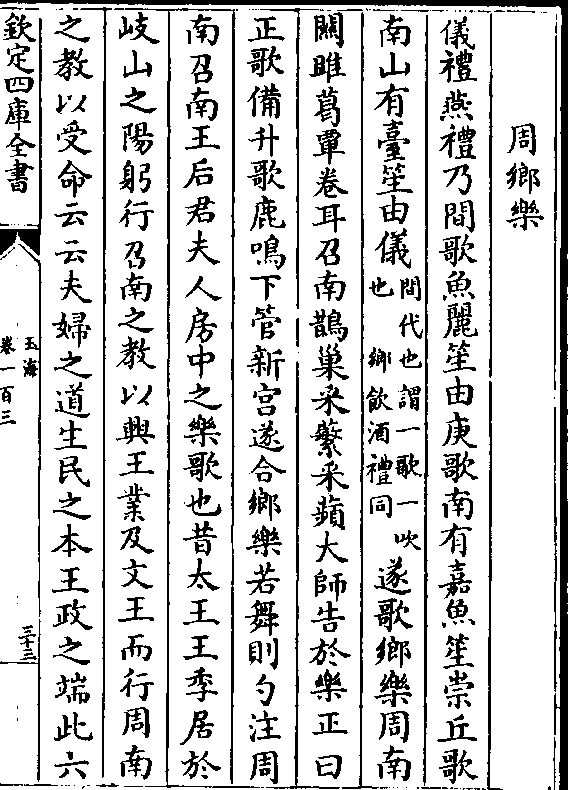 周鄉樂
儀禮燕禮乃間歌魚麗笙由庚歌南有嘉魚笙崇丘歌
南山有臺笙由儀間代也謂一歌一吹也鄉飲酒禮同遂歌鄉樂周南
關雎葛覃卷耳召南鵲巢采蘩采蘋大師告於樂正曰
正歌備升歌鹿鳴下管新宫遂合鄉樂若舞則勺注周
南召南王后君夫人房中之樂歌也昔太王王季居於
岐山之陽躬行召南之教以興王業及文王而行周南
之教以受命云云夫婦之道生民之本王政之端此六
欽定四庫全書
玉海
卷一百三
三十三